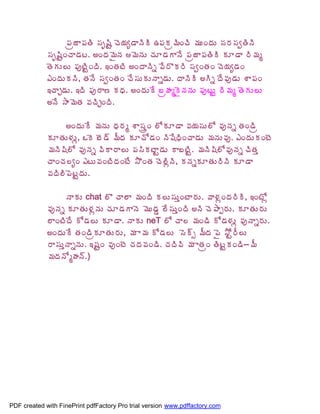 ప్రజాపతి సృష్టి చెయ్యడానికి ఉపక్రమించి ముందు సరస్వతిని
సృష్టించాడట. అందమైన ఆమెను చూడగానే ప్రజాపతికి కూడా రిమ్మ
తెగులు పుట్టింది. ఇంతటి అందాన్ని వేరొకరి స్వంతం చెయ్యడం
ఎందుకని, తనే స్వంతం చేసుకున్నాడు. దానికి అగ్ని దేవుడు శాపం
ఇచ్చాడు. ఇది పురాణ కధ. అందుకే బ్రహ్మకైనను పుట్టు రిమ్మ తెగులు
అనే సామెత వచ్చింది.
అందుకే మను ధర్మ శాస్త్రం లోకూడా వయసులో వున్న తండ్రి
కూతుళ్ళు, ఒకే బెడ్ మీద కూచోడం నిషేధించాడు మనువు. ఎందుకంటె
మనిషిలో వున్న వికారాలు పసికట్టాడు కాబట్టి. మనిషిలోవున్న చిత్త
చాంచల్యం ఎటువంటిదంటే సొంత చెల్లిని, కన్నకూతురిని కూడా
వదిలిపెట్టదు.
నాకు chat లొ చాలా మంది కలుసుంటారు. వాళ్లందరికి, ఇంట్లో
వున్న కూతుళ్లను చూడగానె మొడ్డ లేసుద్ది అని చెప్పారు. కూతురు
లాంటిదే కోడలు కూడా. నాకు neT లో చాల మండి కోడళ్లు వున్నారు.
అందుకే తండ్రికూతురు, మామ కోడలు సెక్స్ మీద పై స్టోరీలు
రాసున్నాను. ఇష్టం వుంటె చదవండి. చదివి మాత్రం తిట్టకండి– మీ
మదనోమోహన్.)
PDF created with FinePrint pdfFactory Pro trial version www.pdffactory.com